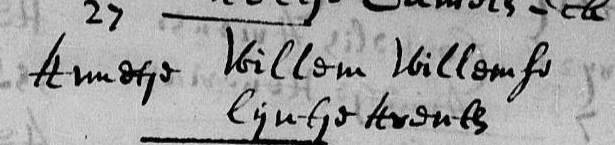 27
Annetje Willem Willemse
Lijntje Arents